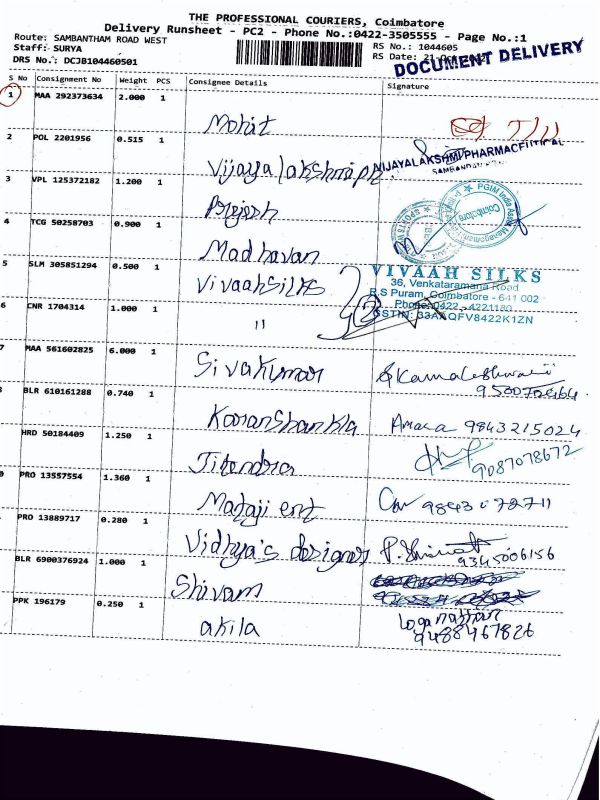 THE PROFESSIONAL COURIERS, Coimbatore
Delivery Runsheet - PC2 - Phone No.:0422-3505555 - Page No.:1
Route: SAMBANTHAM ROAD WEST
Staff: SURYA
DRS No.: DCJB104460501
RS No.: 1044605
RS Date: 21
DOCUMENT DELIVERY
S No Consignment No Weight PCS Consignee Details Signature
1 MAA 292373634 2.000 1 Mohit
2 POL 2201956 0.515 1 Vijayalakshmi
VIJAYALAKSHMI PHARMACEUTICAL
3 VPL 125372182 1.200 1
4 TCG 50258703 0.900 1 Madhavan
PGIM India Asset Management
Coimbatore
5 SLM 305851294 0.500 1 Vivaahsilks
VIVAAH SILKS
36, Venkataramana Road
R.S Puram, Coimbatore - 641 002
Phone: 0422 - 4221180
GSTIN: 33AAQFV8422K1ZN
6 CNR 1704314 1.000 1 "
7 MAA 561602825 6.000 1 Sivakumar
BLR 610161288 0.740 1 Karanshankla 9843215024
HRD 50184409 1.250 1 Jitendra 9087078672
0 PRO 13557554 1.360 1 Mataji ent
PRO 13889717 0.280 1 Vidhya's designer 9345006156
BLR 6900376924 1.000 1 Shivam
PPK 196179 0.250 1 akila Loganathan
9488467826